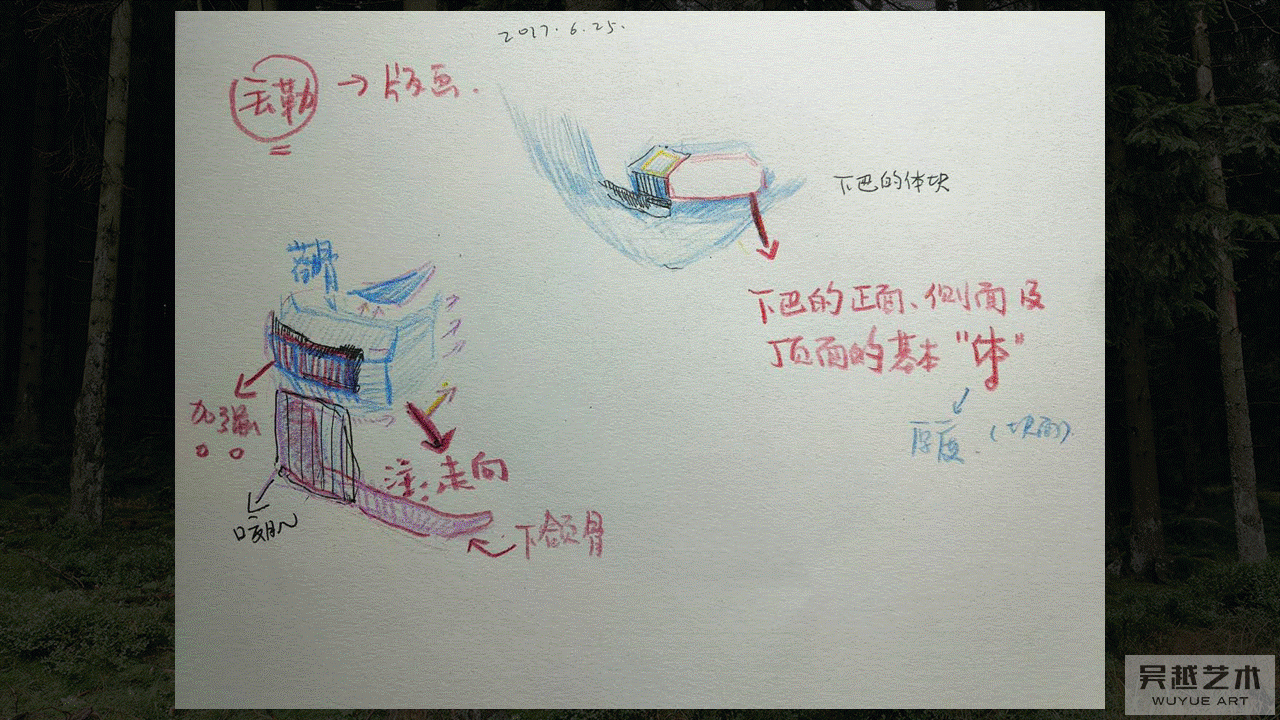 2017.6.25.
丢勒 → 版画.
下巴的体块
颧骨
下巴的正面、侧面及
顶面的基本“体”
加强
厚度. (块面).
注:走向
咬肌
下颌骨
吴越艺术
WUYUE ART